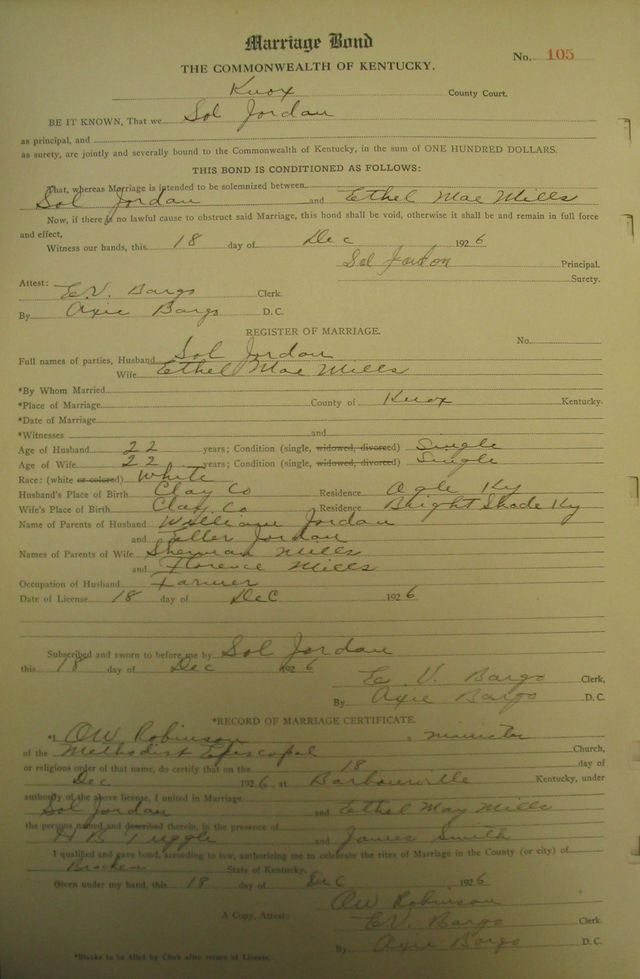 Marriage Bond
No. 105
THE COMMONWEALTH OF KENTUCKY.
Knox County Court.
BE IT KNOWN, That we Sol Jordan
as principal, and
as surety, are jointly and severally bound to the Commonwealth of Kentucky, in the sum of ONE HUNDRED DOLLARS.
THIS BOND IS CONDITIONED AS FOLLOWS:
That, whereas Marriage is intended to be solemnized between
Sol Jordan and Ethel Mae Mills
Now, if there is no lawful cause to obstruct said Marriage, this bond shall be void, otherwise it shall be and remain in full force
and effect,
Witness our hands, this 18 day of Dec 1926
Sol Jordon Principal.
Surety.
Attest:
E.V. Bargo Clerk.
By Axie Bargo D.C.
REGISTER OF MARRIAGE.
No.
Full names of parties, Husband Sol Jordan
Wife Ethel Mae Mills
*By Whom Married
*Place of Marriage County of Knox Kentucky.
*Date of Marriage
*Witnesses and
Age of Husband 22 years; Condition (single, widowed, divorced) Single
Age of Wife 22 years; Condition (single, widowed, divorced) Single
Race: (white or colored) White
Husband's Place of Birth Clay Co Residence Ogle Ky
Wife's Place of Birth Clay Co Residence Bright Shade Ky
Name of Parents of Husband William Jordan
and Jordan
Names of Parents of Wife Sherman Mills
and Florence Mills
Occupation of Husband Farmer
Date of License 18 day of Dec 1926
Subscribed and sworn to before me by Sol Jordan
this 18 day of Dec 1926
E. V. Bargo Clerk,
By Axie Bargo D.C.
*RECORD OF MARRIAGE CERTIFICATE.
*I OW Robinson a minister
of the Methodist Episcopal Church,
or religious order of that name, do certify that on the 18 day of
Dec 1926 at Barbourville Kentucky, under
authority of the above license, I united in Marriage
Sol Jordan and Ethel May Mills
the persons named and described therein, in the presence of
H B Tuggle and James Smith
I qualified and gave bond, according to law, authorizing me to celebrate the rites of Marriage in the County (or city) of
Bracken State of Kentucky.
Given under my hand, this 18 day of Dec 1926
OW Robinson
A Copy, Attest: E.V. Bargo Clerk.
By Axie Bargo D.C.
*Blanks to be filled by Clerk after return of License.